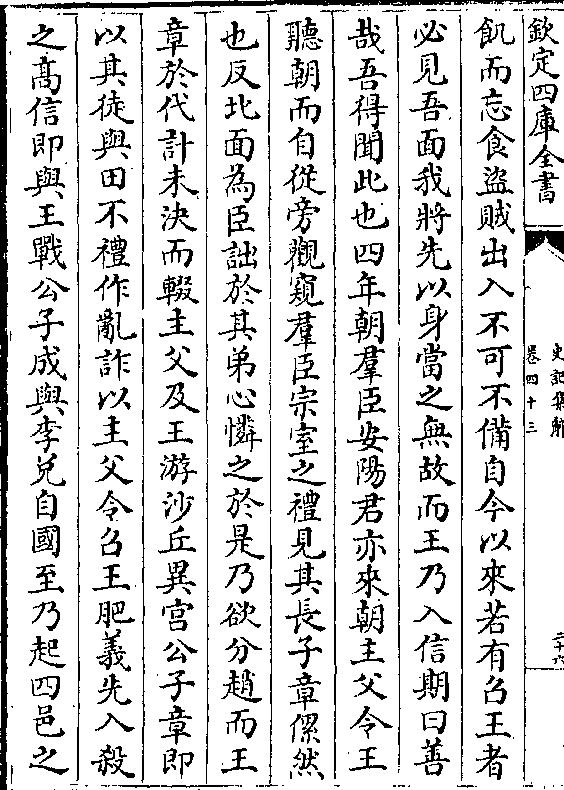 欽定四庫全書
史記集解
卷四十三
二十六
飢而忘食盜賊出入不可不備自今以來若有召王者
必見吾面我將先以身當之無故而王乃入信期曰善
哉吾得聞此也四年朝羣臣安陽君亦來朝主父令王
聽朝而自從旁觀窺羣臣宗室之禮見其長子章傫然
也反北面為臣詘於其弟心憐之於是乃欲分趙而王
章於代計未決而輟主父及王游沙丘異宮公子章即
以其徒與田不禮作亂詐以主父令召王肥義先入殺
之髙信即與王戰公子成與李兌自國至乃起四邑之